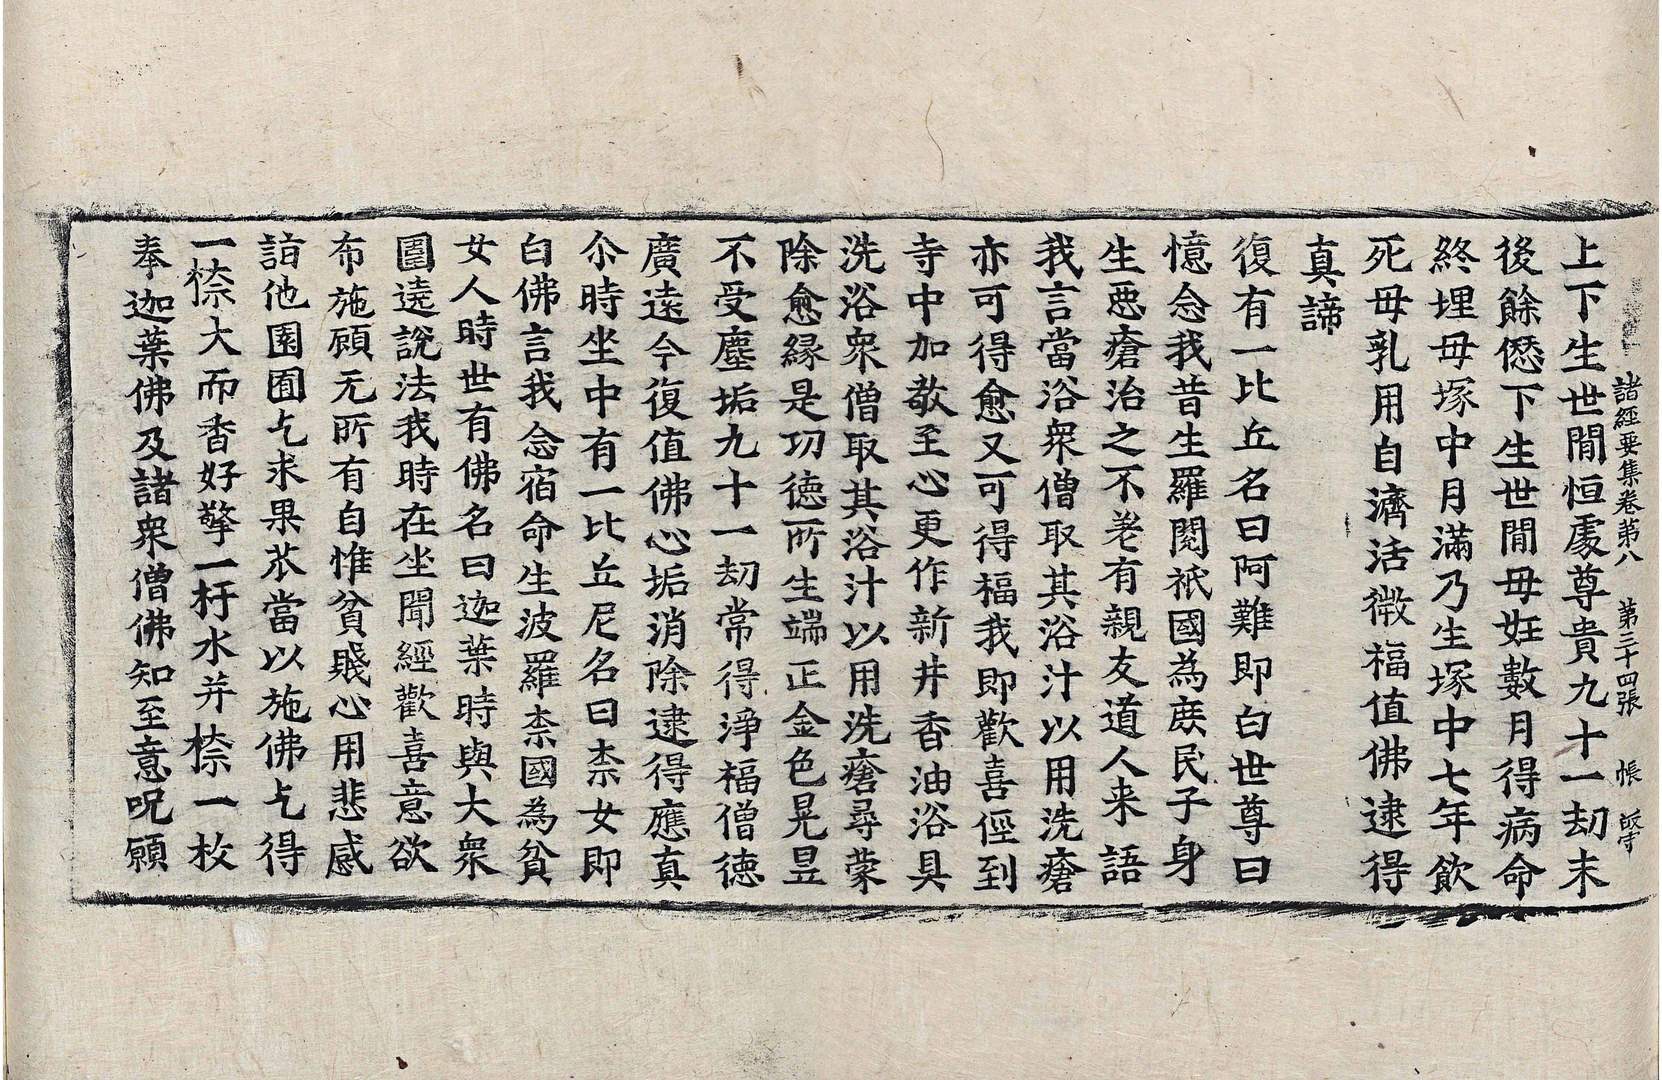 諸經要集卷第八 第三十四張 帳
上下生世間恒處尊貴九十一劫末
後餘愆下生世間毋妊數月得病命
終埋毋塚中月滿乃生塚中七年飲
死毋乳用自濟活微福值佛逮得
真諦
復有一比丘名曰阿難即白世尊曰
憶念我昔生羅閱祇國為庶民子身
生惡瘡治之不差有親友道人来語
我言當浴衆僧取其浴汁以用洗瘡
亦可得愈又可得福我即歡喜俓到
寺中加敬至心更作新井香油浴具
洗浴衆僧取其浴汁以用洗瘡尋蒙
除愈緣是功德所生端正金色晃昱
不受塵垢九十一劫常得淨福僧德
廣遠今復值佛心垢消除逮得應真
尒時坐中有一比丘尼名曰柰女即
白佛言我念宿命生波羅柰國為貧
女人時世有佛名曰迦葉時與大衆
圍遶說法我時在坐聞經歡喜意欲
布施願无所有自惟貧賤心用悲感
詣他園囿乞求果苽當以施佛乞得
一㮈大而香好擎一杅水并㮈一枚
奉迦葉佛及諸衆僧佛知至意呪願